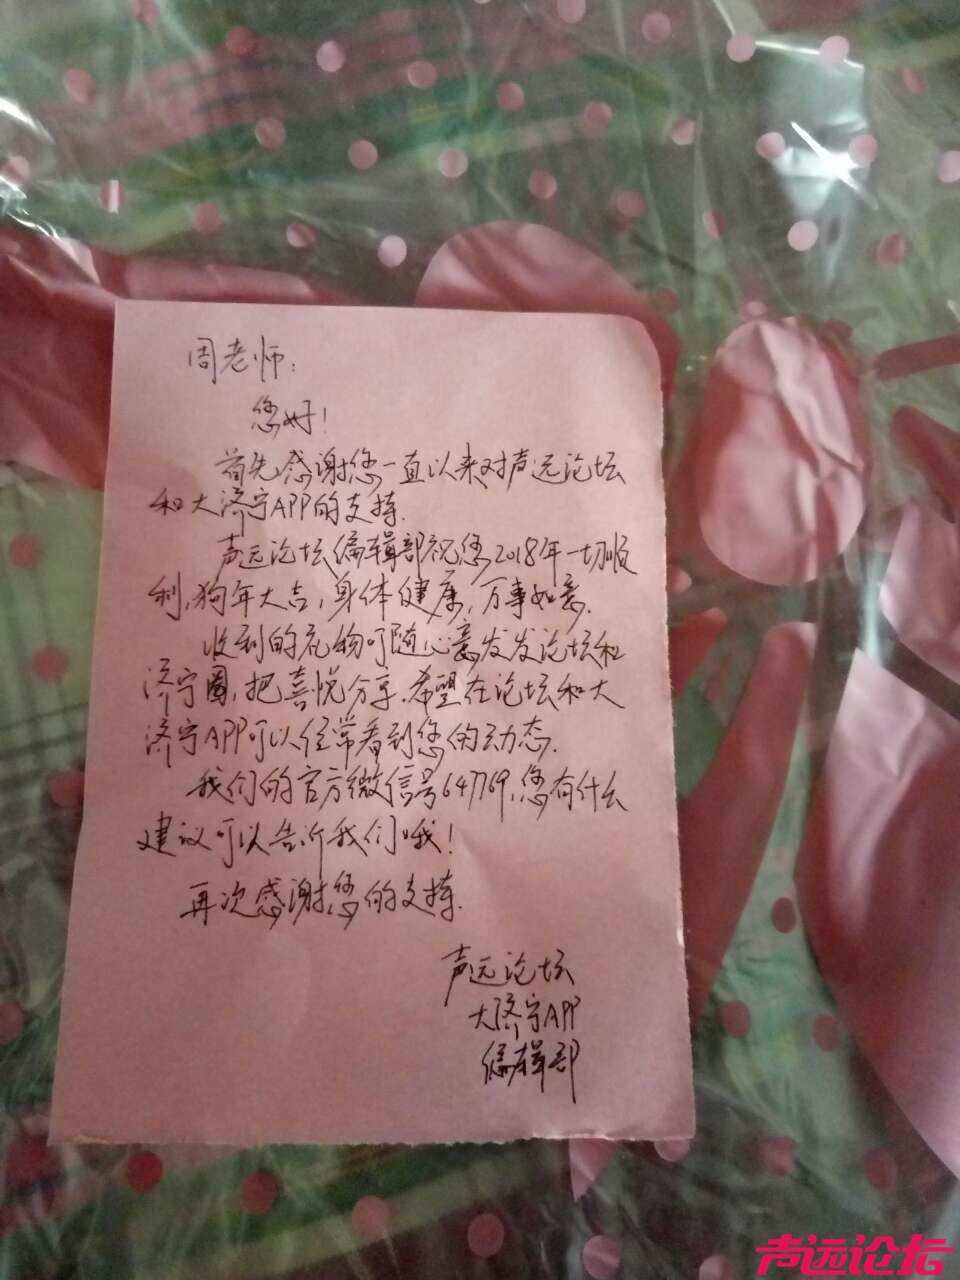 周老师:
您好!
首先感谢您一直以来对声远论坛
和大济宁APP的支持.
声远论坛编辑部祝您2018年一切顺
利,狗年大吉,身体健康,万事如意.
收到的礼物可随心意发发论坛和
济宁圈,把喜悦分享.希望在论坛和大
济宁APP可以经常看到您的动态.
我们的官方微信号64769,您有什么
建议可以告诉我们哦!
再次感谢您的支持.
声远论坛
大济宁APP
编辑部
声远论坛